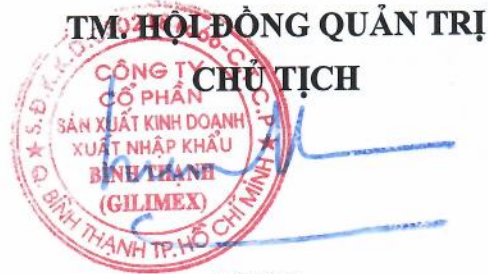 TM. HỘI ĐỒNG QUẢN TRỊ
CHỦ TỊCH
CÔNG TY
CỔ PHẦN
SẢN XUẤT KINH DOANH
XUẤT NHẬP KHẨU
BÌNH THẠNH
(GILIMEX)
Q. BÌNH THẠNH TP. HỒ CHÍ MINH